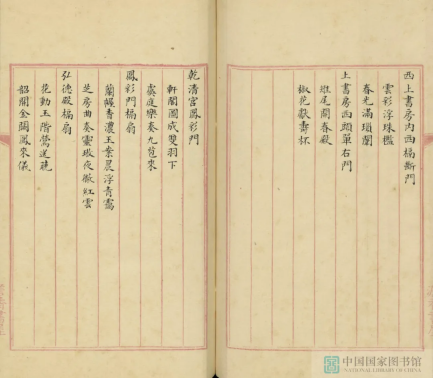 西上書房內西槅斷門
雲彩浮珠檻
春光滿瑣闈
上書房西頭單右門
雉尾開春殿
椒花獻壽杯
乾清宮鳳彩門
軒閣圖成雙羽下
虞庭樂奏九苞來
鳳彩門槅扇
蘭幄香濃玉案晨浮青靄
芝房曲奏雲璈夜徹紅雲
弘德殿槅扇
花動玉階鶯送曉
韶開金闕鳳來儀
中国国家图书馆
NATIONAL LIBRARY OF CHINA